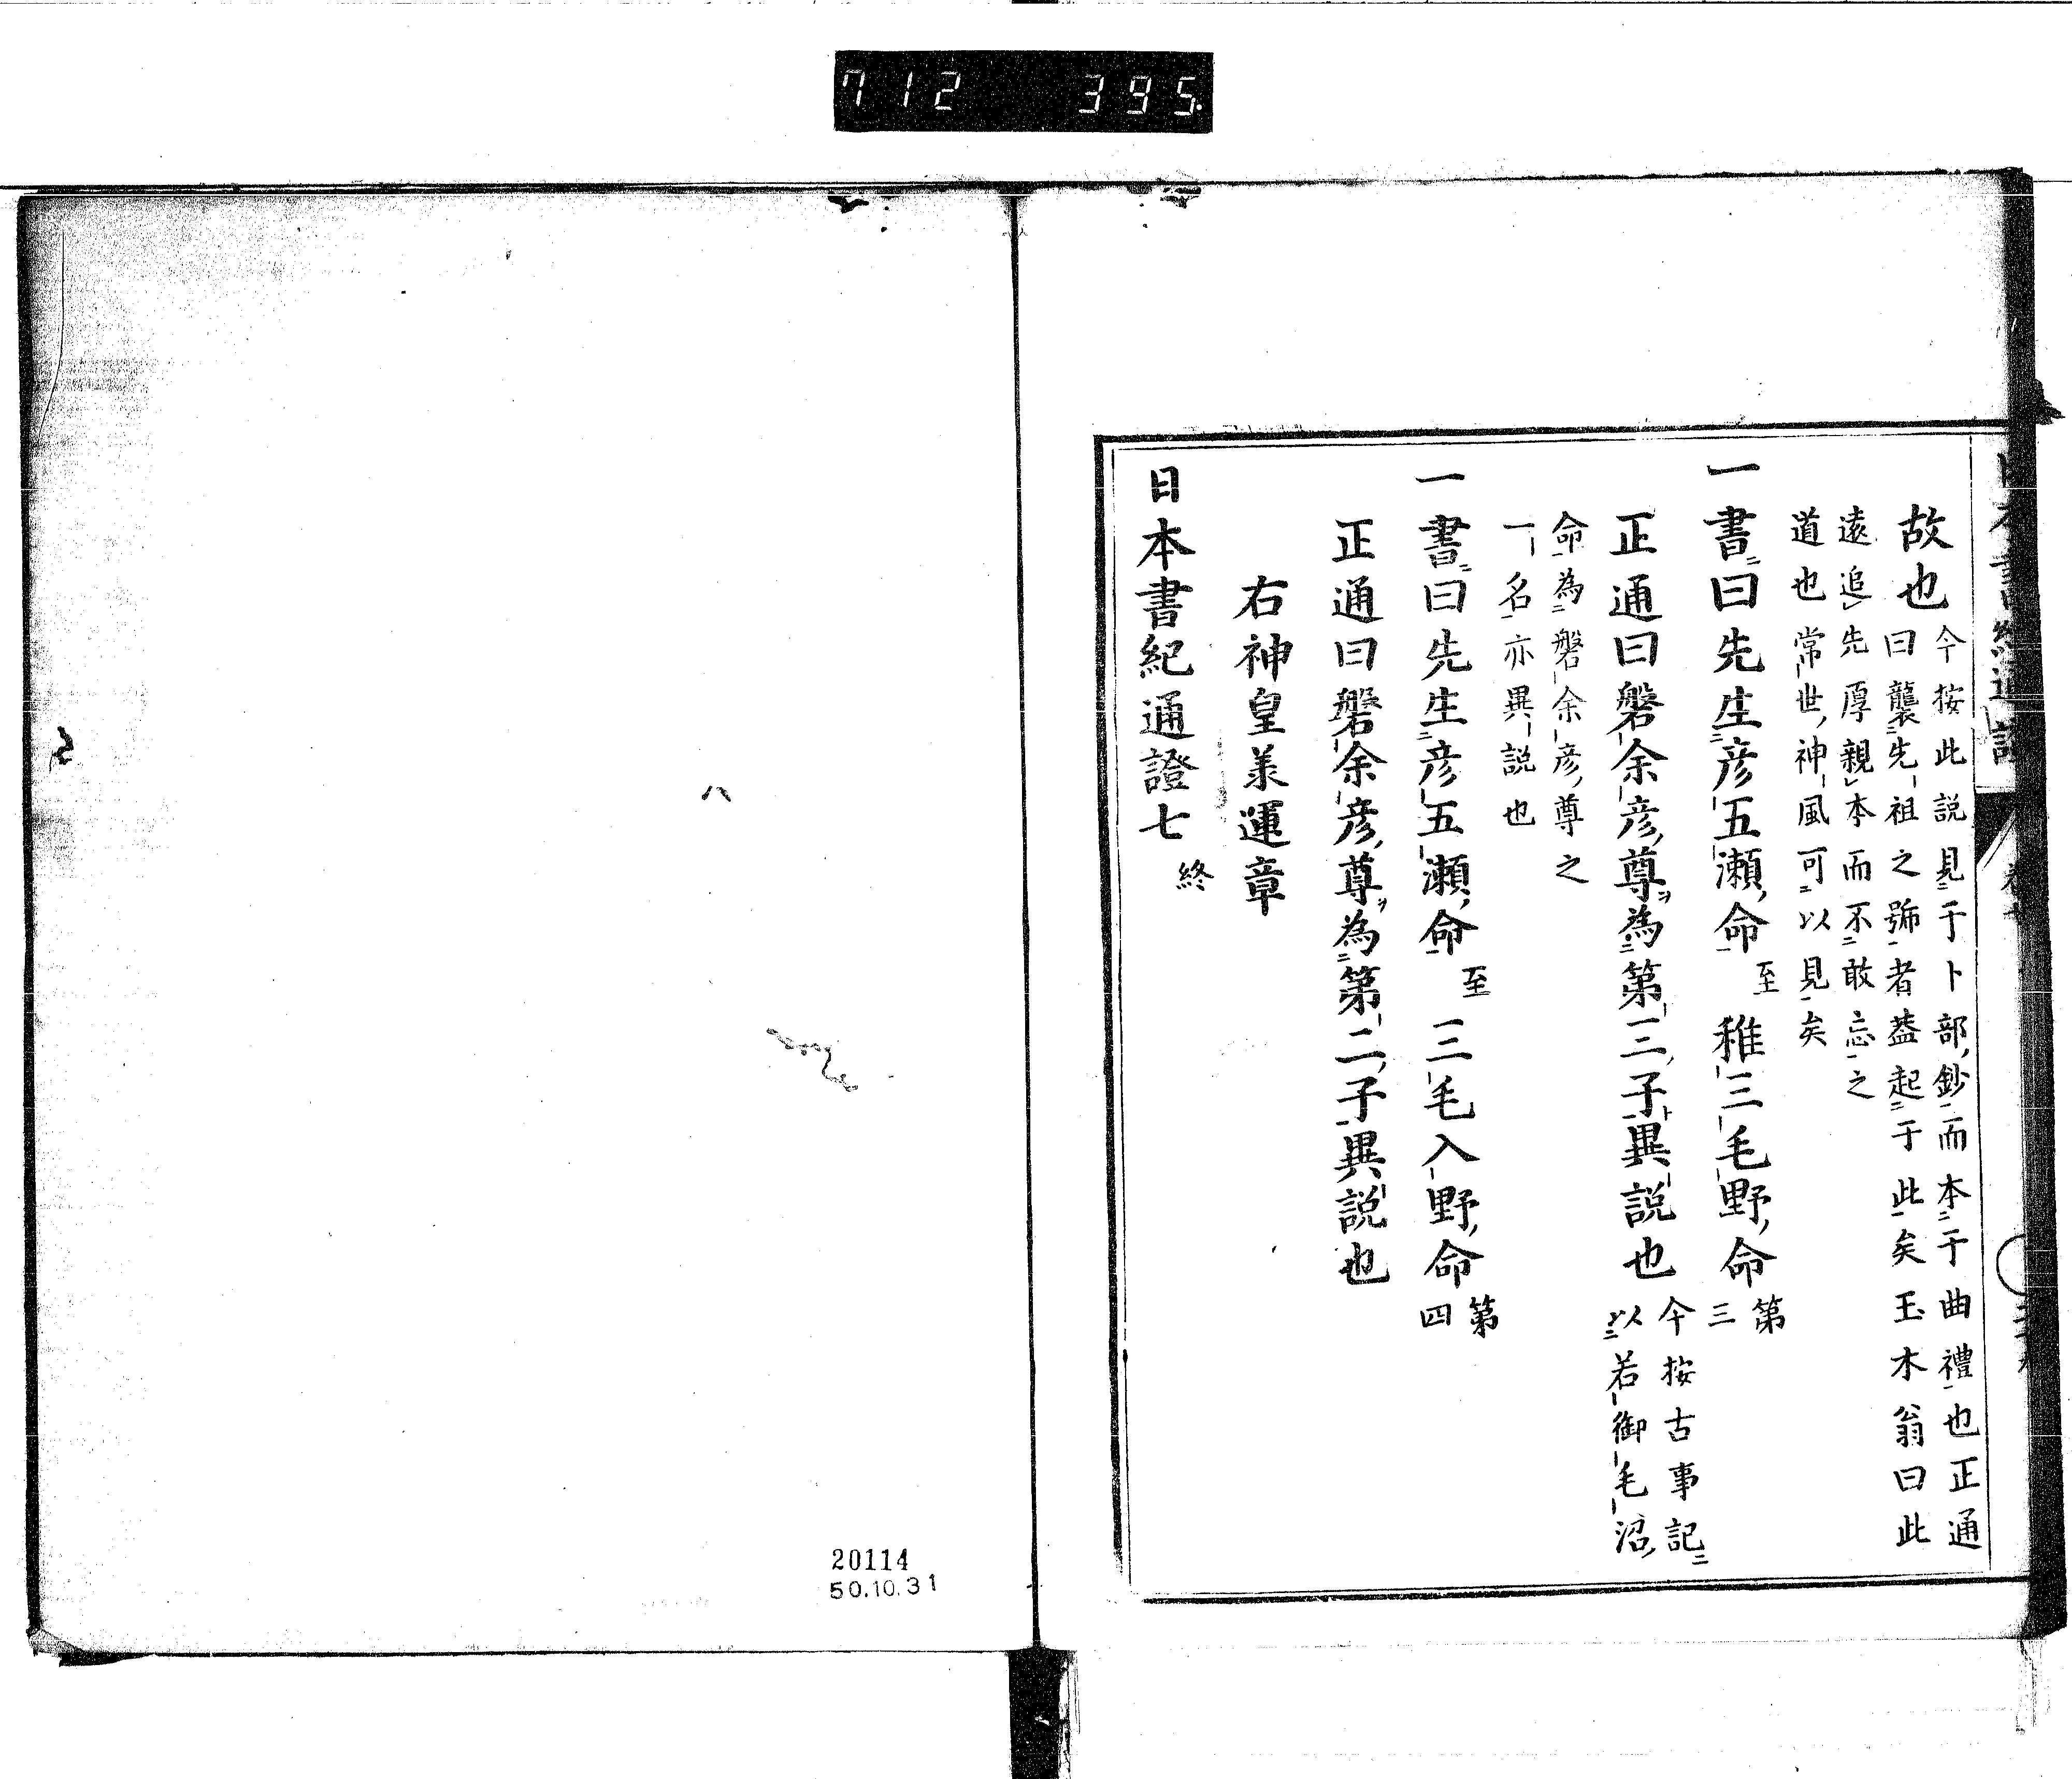 712 395
故也
今按此説見于卜部鈔而本于曲禮也正通
曰襲先祖之號者蓋起于此矣玉木翁曰此
遠追先厚親本而不敢忘之
道也常世神風可以見矣
一書曰先生彦五瀬命至稚三毛野命第三
正通曰磐余彦尊為第三子異説也
今按古事記
以若御毛沼
命為磐余彦尊之
一名亦異説也
一書曰先生彦五瀬命至三毛入野命第四
正通曰磐余彦尊為第二子異説也
右神皇承運章
日本書紀通證七終
20114
50.10.31